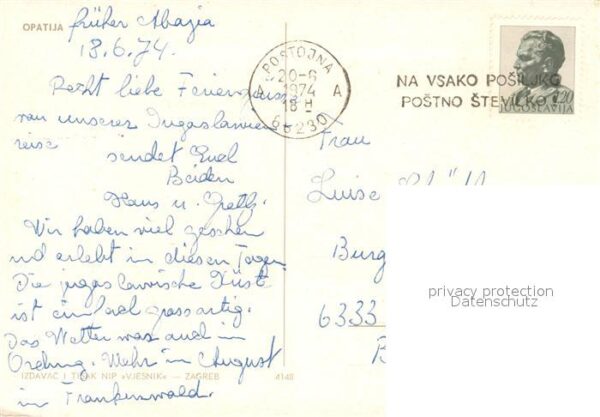 OPATIJA
früher Abazia
18.6.74.
Recht liebe Feriengrüsse
von unserer Jugoslawien
reise
sendet Euch
Beiden
Hans u. Gretl.
Wir haben viel gesehen
und erlebt in diesen Tagen.
Die jugoslawische Küste
ist einfach grossartig.
Das Wetter war auch in
Ordnung. Mehr im August
im Frankenwald.
IZDAVAČ I TISAK NIP «VJESNIK» — ZAGREB 4148
POSTOJNA
20-6
1974
A A
18 H
66230
NA VSAKO POŠILJKO
POŠTNO ŠTEVILKO
1,20
JUGOSLAVIJA
Frau
Luise
Burg
6333
B
privacy protection
Datenschutz